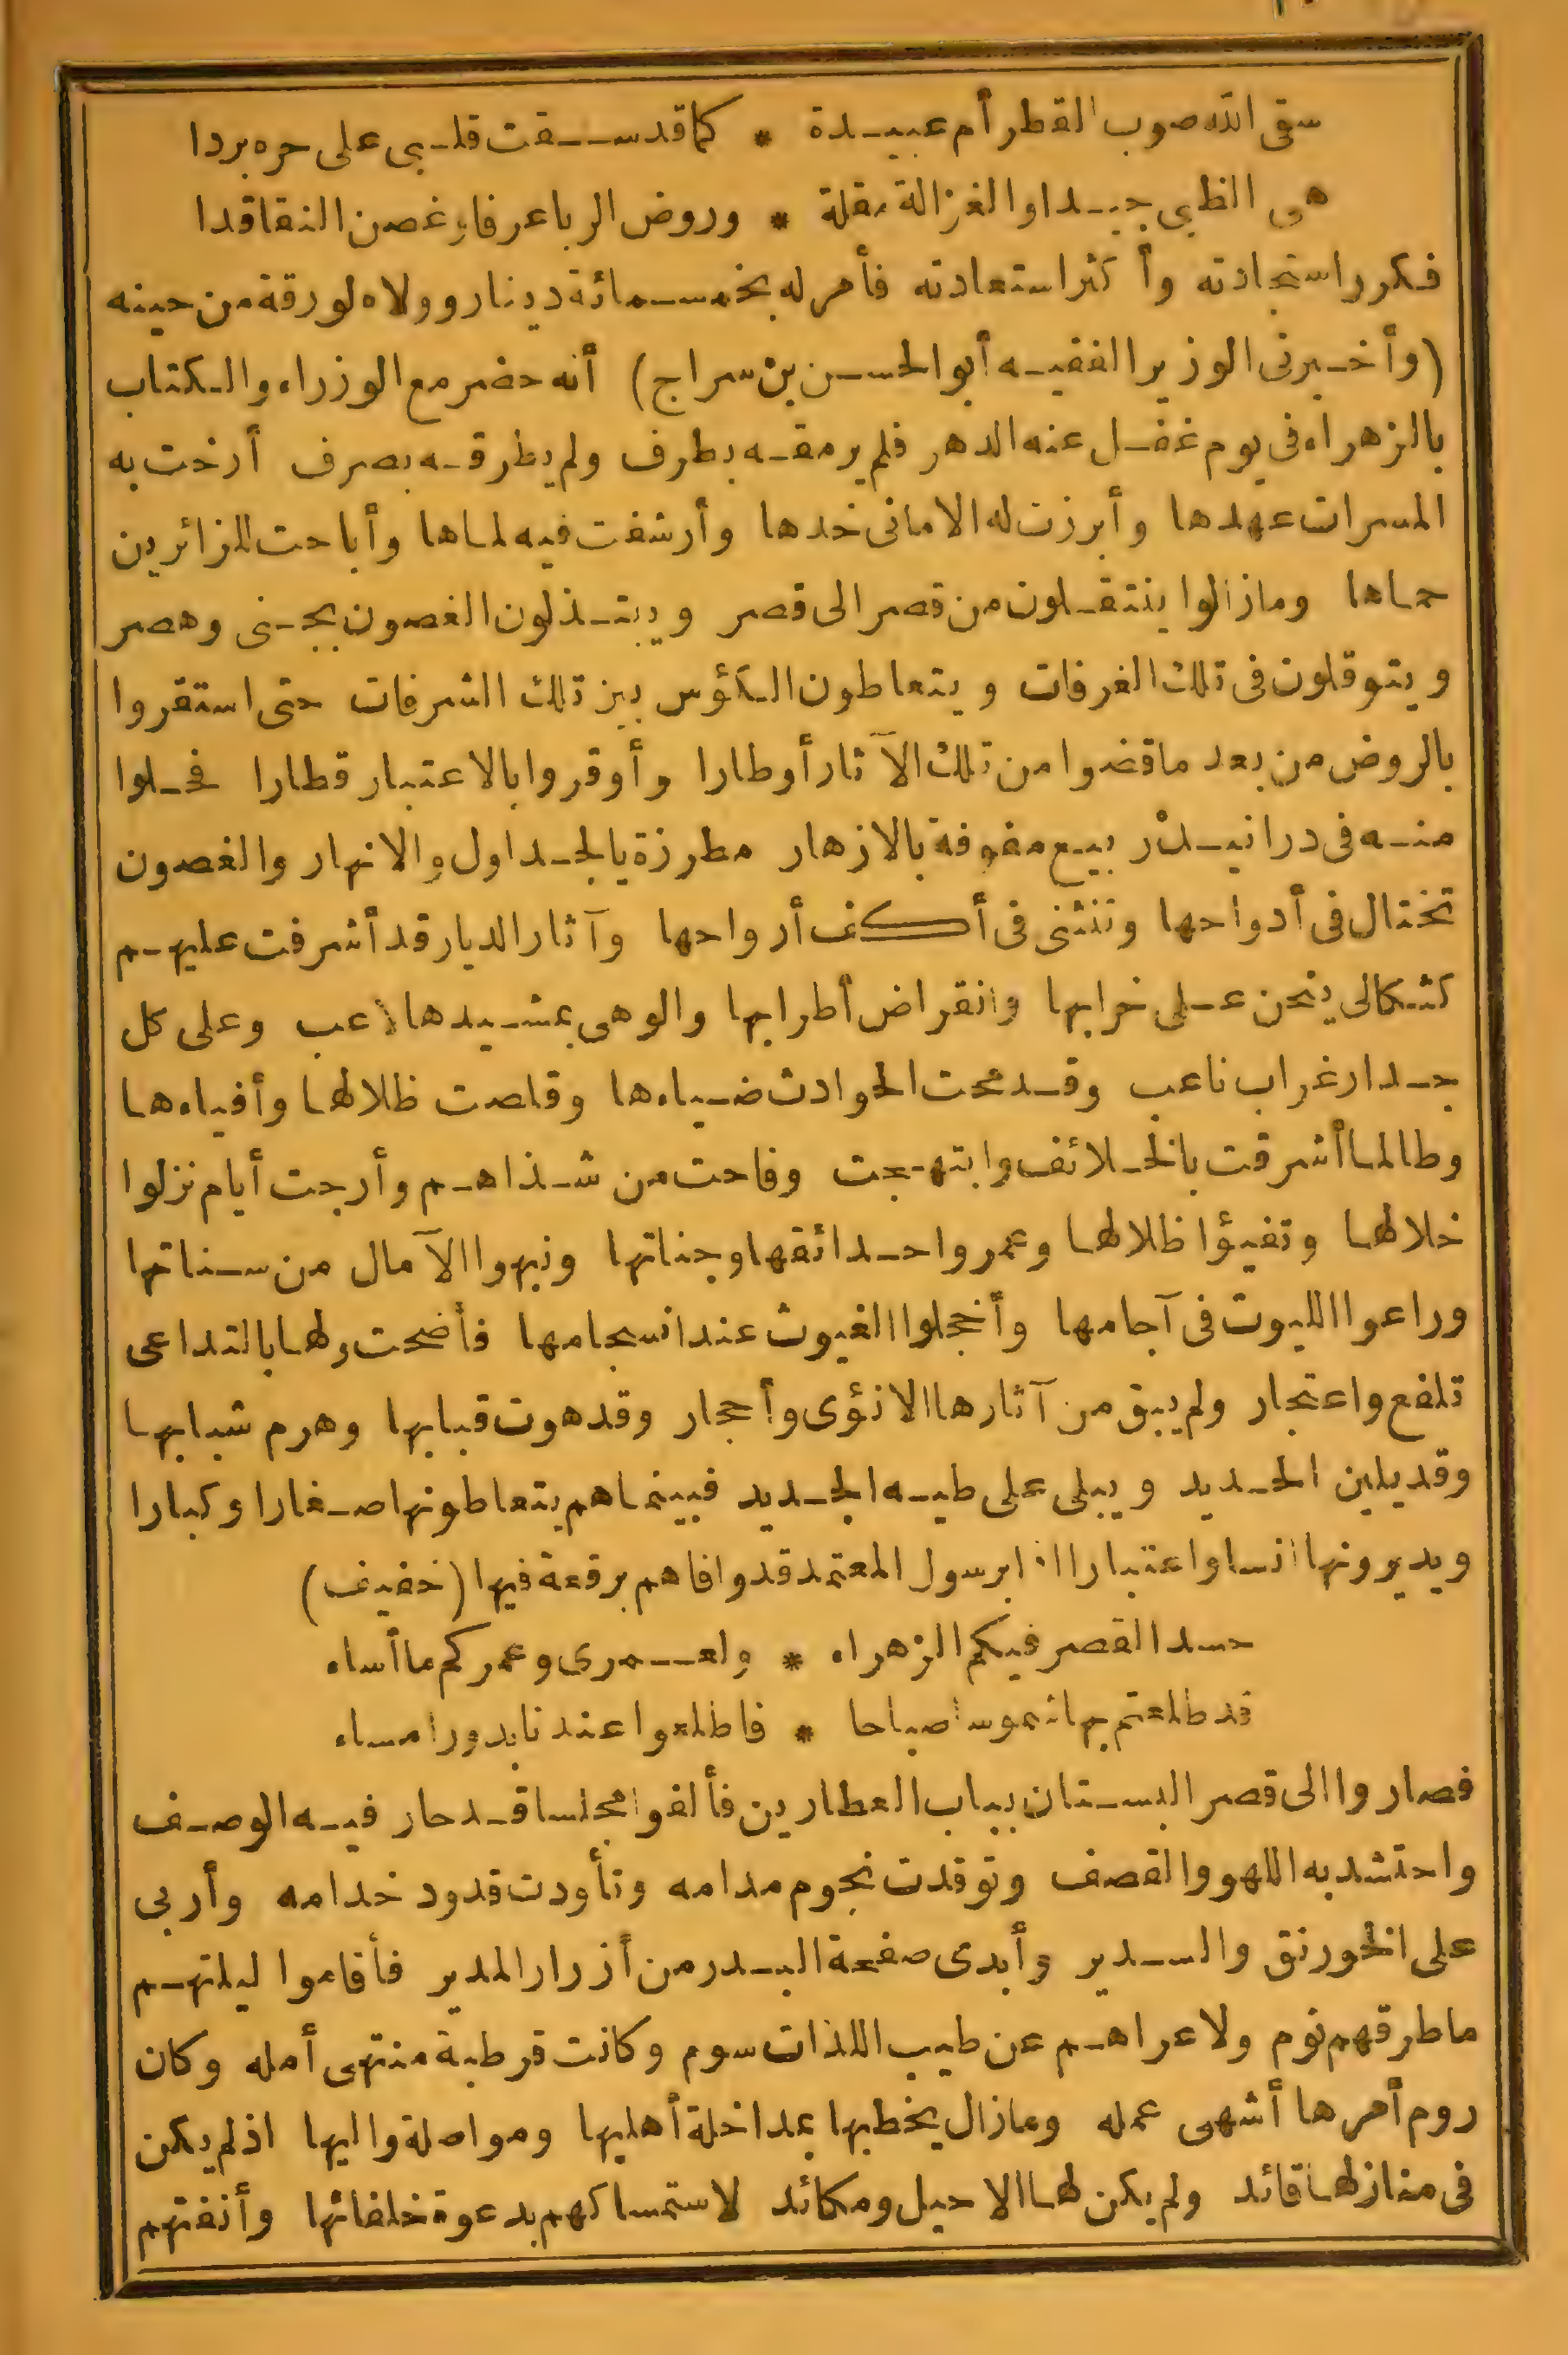 سقى الله صوب القطر أم عبيدة * كما قد سقت قلبي على حره بردا
هي الظبي جيدا والغزالة مقلة * وروض الربا عرفا وغصن النقا قدا
فكرر استجادته وأكثر استعادته فأمر له بخمسمائة دينار وولاه لورقة من حينه
(وأخبرني الوزير الفقيه أبو الحسن بن سراج) أنه حضر مع الوزراء والكتاب
بالزهراء في يوم غفل عنه الدهر فلم يرمقه بطرف ولم يطرقه بصرف أرخت به
المسرات عهدها وأبرزت له الاماني خدها وأرشفت فيه لماها وأباحت للزائرين
حماها ومازالوا ينتقلون من قصر الى قصر ويبتذلون الغصون بجنى وهصر
ويتوقلون في تلك الغرفات ويتعاطون الكؤس بين تلك الشرفات حتى استقروا
بالروض من بعد ما قضوا من تلك الآثار أوطارا وأوقروا بالاعتبار قطارا فحلوا
منه في درانيك ربيع مفوفة بالازهار مطرزة بالجداول والانهار والغصون
تختال في أدواحها وتنثني في أكف أرواحها وآثار الديار قد أشرفت عليهم
كثكالى ينحن على خرابها وانقراض أطرابها والوهى بمشيدها لاعب وعلى كل
جدار غراب ناعب وقد محت الحوادث ضياءها وقلصت ظلالها وأفياءها
وطالما أشرقت بالخلائف وابتهجت وفاحت من شذاهم وأرجت أيام نزلوا
خلالها وتفيؤا ظلالها وعمروا حدائقها وجناتها ونبهوا الآمال من سناتها
وراعوا الليوث في آجامها وأخجلوا الغيوث عند انسجامها فأضحت ولها بالتداعي
تلفع واعتجار ولم يبق من آثارها الا نؤى وأحجار وقد هوت قبابها وهرم شبابها
وقد يلين الحديد ويبلى على طيه الجديد فبينما هم يتعاطونها صغارا وكبارا
ويديرونها أنسا واعتبارا اذا برسول المعتمد قد وافاهم برقعة فيها (خفيف)
حسد القصر فيكم الزهراء * ولعمري وعمركم ما أساء
قد طلعتم بها شموسا صباحا * فاطلعوا عندنا بدورا مساء
فصاروا الى قصر البستان بباب العطارين فألفوا مجلسا قد حار فيه الوصف
واحتشد به اللهو والقصف وتوقدت نجوم مدامه وتأودت قدود خدامه وأربى
على الخورنق والسدير وأبدى صفحة البدر من أزرار المدير فأقاموا ليلتهم
ما طرقهم نوم ولا عراهم عن طيب اللذات سوم وكانت قرطبة منتهى أمله وكان
روم أمرها أشهى عمله ومازال يخطبها بمداخلة أهليها ومواصلة واليها اذ لم يكن
في منازلها قائد ولم يكن لها الا حيل ومكائد لاستمساكهم بدعوة خلفائها وأنفتهم